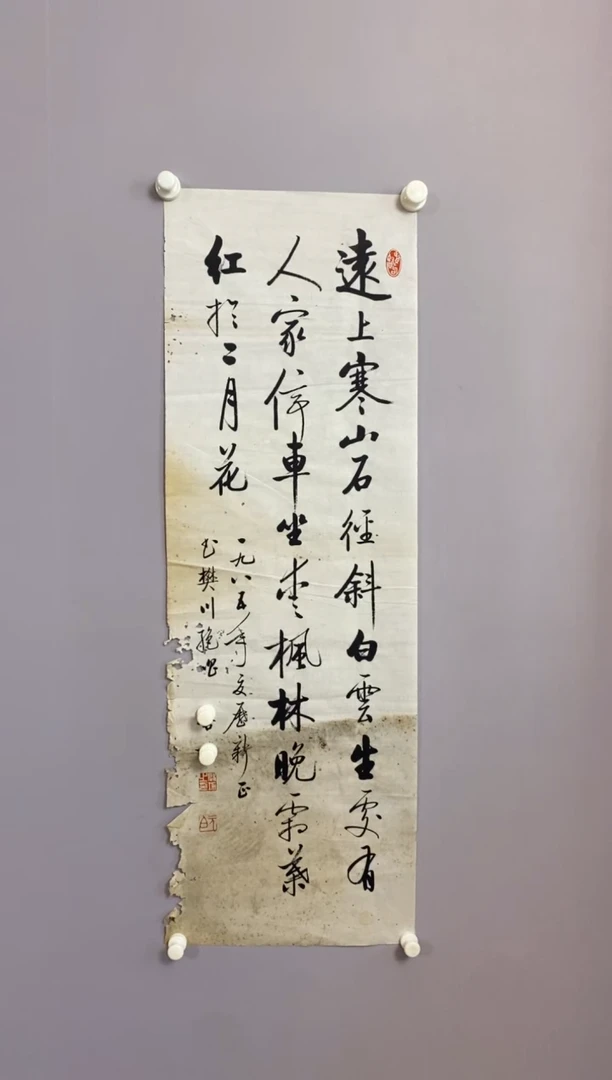 遠上寒山石徑斜白雲生處有
人家停車坐愛楓林晚霜葉
紅於二月花
一九八五年夏歷新正
书樊川